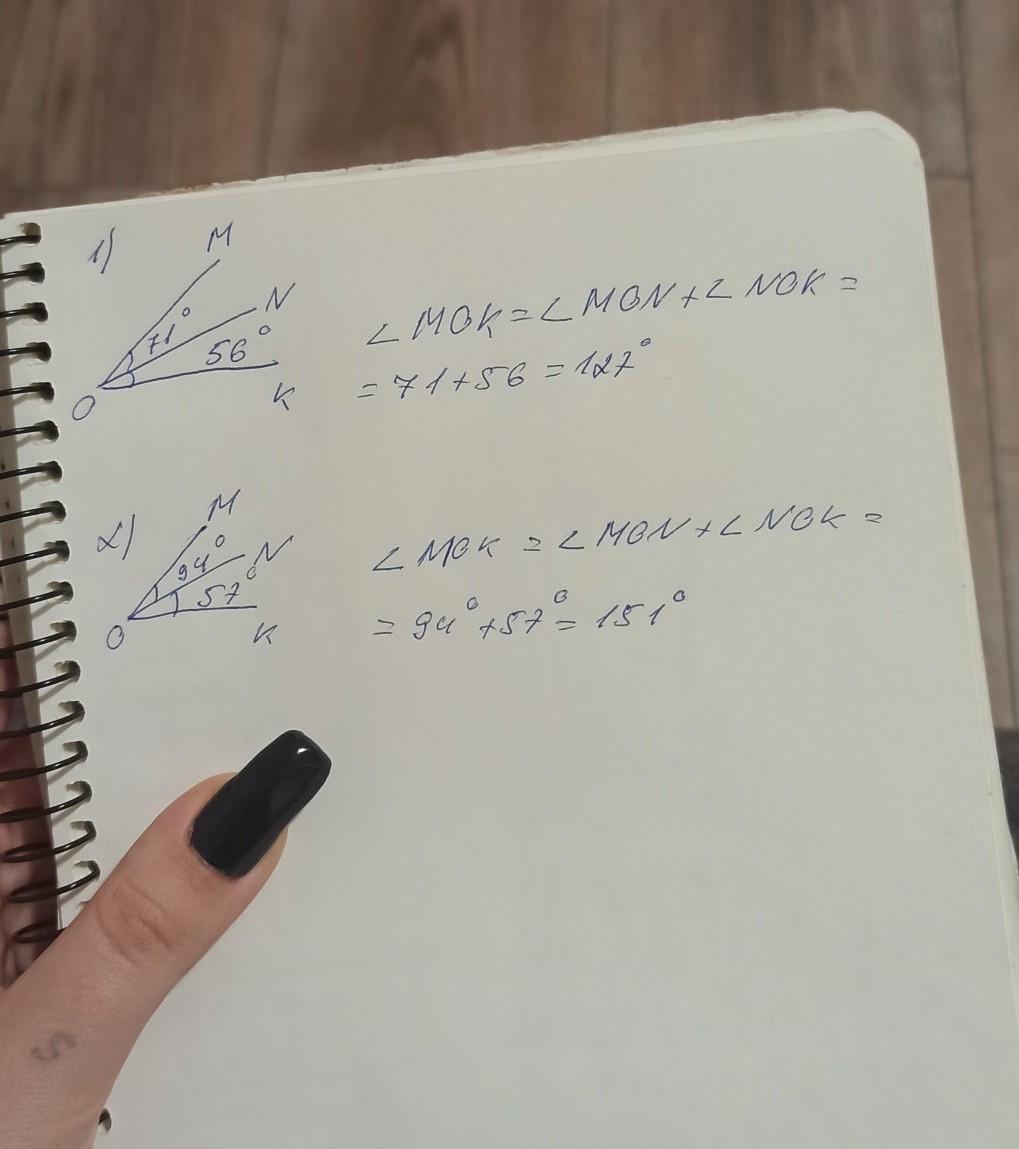 1)
M
N
71°
56°
O
K
∠MOK=∠MON+∠NOK=
=71+56=127°
2)
M
94°
N
57°
O
K
∠MOK=∠MON+∠NOK=
=94°+57°=151°
S